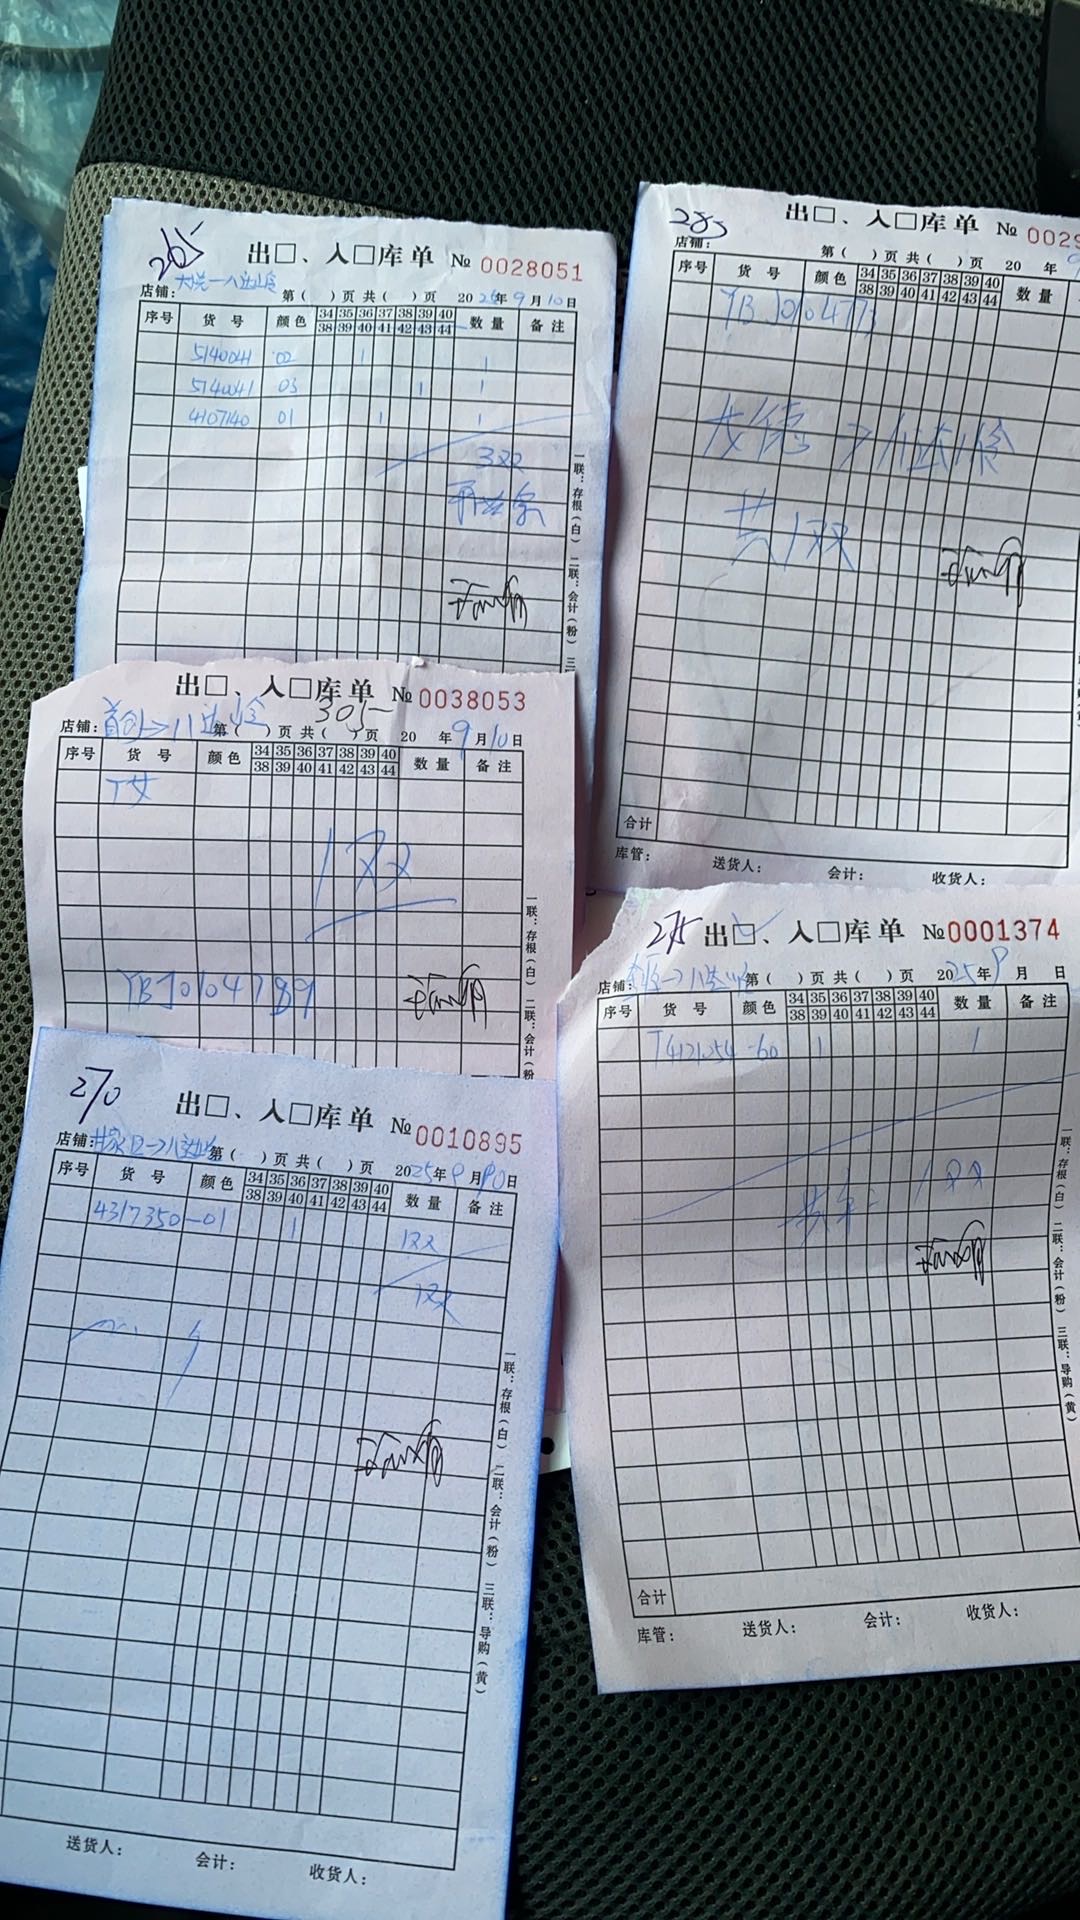 265
出□、入□库单 № 0028051
店铺： 第( )页 共( )页 2025年9月10日
序号 货号 颜色 34 35 36 37 38 39 40 数量 备注
38 39 40 41 42 43 44
5140041 02 1 1
5140041 03 1 1
4107140 01 1 1
3双
一联：存根(白) 二联：会计(粉) 三
285
出□、入□库单 № 0029
店铺： 第( )页 共( )页 20 年 9
序号 货号 颜色 34 35 36 37 38 39 40 数量
38 39 40 41 42 43 44
YBJ0104773
大德→八达岭
共1双
合计
库管： 送货人： 会计： 收货人：
出□、入□库单 № 0038053
305
店铺：首创→八达岭 第( )页 共( )页 20 年9月10日
序号 货号 颜色 34 35 36 37 38 39 40 数量 备注
38 39 40 41 42 43 44
T女
1双
YBJ0104789
一联：存根(白) 二联：会计(粉
275
出☑、入□库单 №0001374
店铺： →八达岭 第( )页 共( )页 2025年9月 日
序号 货号 颜色 34 35 36 37 38 39 40 数量 备注
38 39 40 41 42 43 44
T4121254-60 1 1
1双
一联：存根(白) 二联：会计(粉) 三联：导购(黄)
合计
库管： 送货人： 会计： 收货人：
270
出□、入□库单 № 0010895
店铺： →八达岭 第( )页 共( )页 2025年9月10日
序号 货号 颜色 34 35 36 37 38 39 40 数量 备注
38 39 40 41 42 43 44
4317350-01 1 1双
1双
一联：存根(白) 二联：会计(粉) 三联：导购(黄)
送货人： 会计： 收货人：